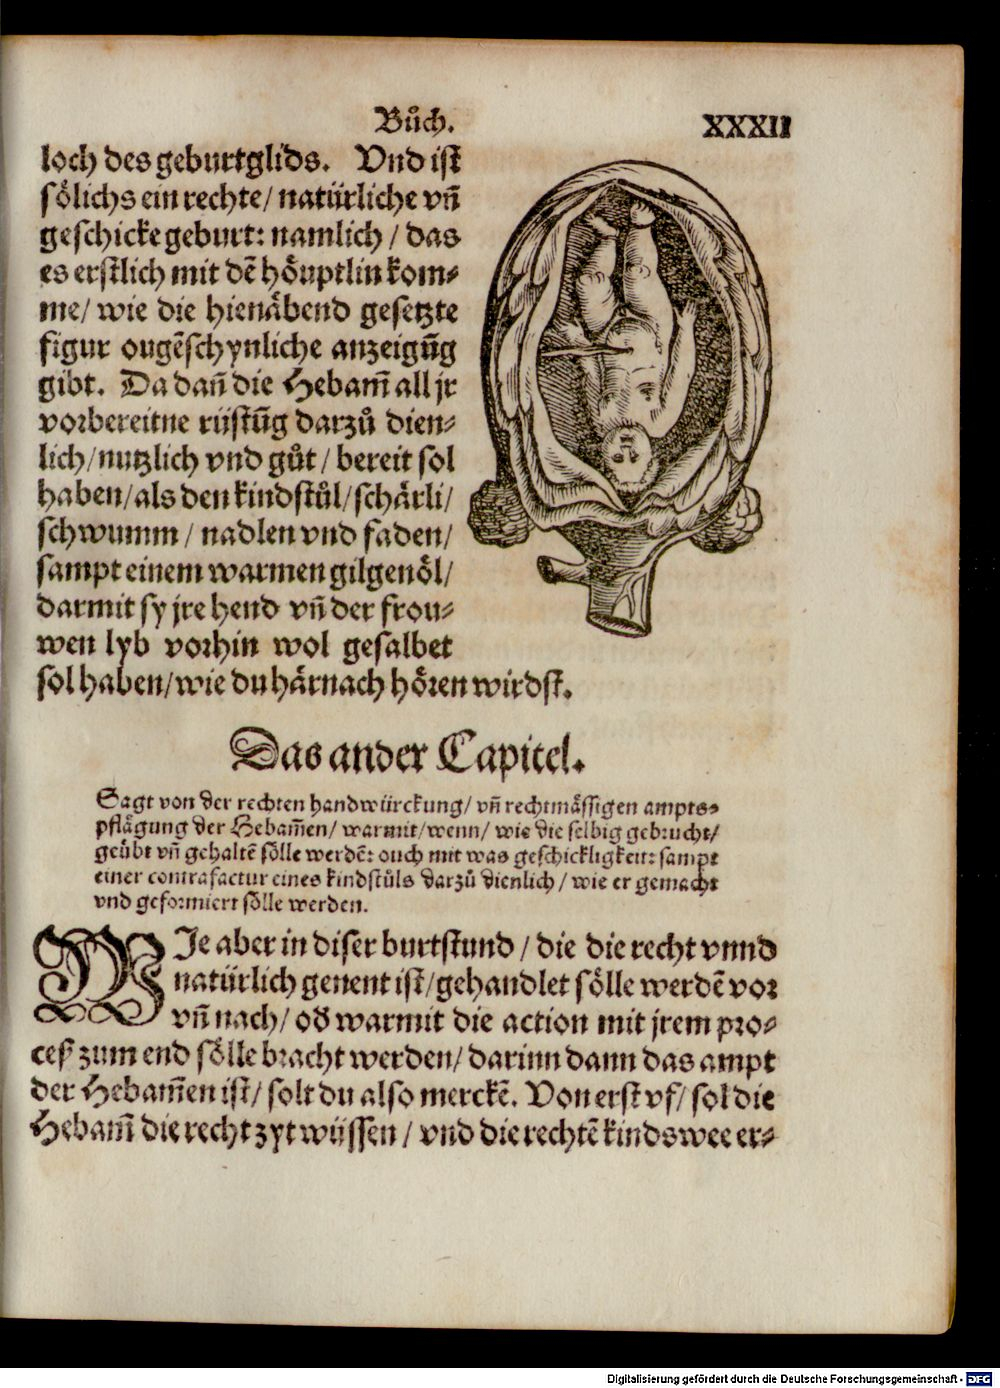 Bůch.
XXXII
loch des geburtglids. Vnd ist
sölichs ein rechte/ natürliche vñ
geschicke geburt: namlich / das
es erstlich mit dẽ höuptlin kom⸗
me/ wie die hienäbend gesetzte
figur ougẽschynliche anzeigũg
gibt. Da dañ die Hebam̃ all jr
vorbereitne rüstũg darzů dien⸗
lich/nutzlich vnd gůt / bereit sol
haben/als den kindstůl/schärli/
schwumm / nadlen vnd faden/
sampt einem warmen gilgenöl/
darmit sy jre hend vñ der frou⸗
wen lyb vorhin wol gesalbet
sol haben/wie du härnach hören wirdst.
Das ander Capitel.
Sagt von der rechten handwürckung/ vñ rechtmässigen ampts⸗
pflägung der Hebam̃en/ warmit/wenn/ wie die selbig gebrucht/
geübt vñ gehaltẽ sölle werdẽ: ouch mit was geschickligkeit: sampt
einer contrafactur eines kindstůls darzů dienlich / wie er gemacht
vnd geformiert sölle werden.
WIe aber in diser burtstund / die die recht vnnd
natürlich genent ist/gehandlet sölle werdẽ vor
vñ nach/ od warmit die action mit jrem pro⸗
ceß zum end sölle bracht werden/ darinn dann das ampt
der Hebam̃en ist/ solt du also merckẽ. Von erst vf/ sol die
Hebam̃ die recht zyt wüssen / vnd die rechtẽ kindswee er⸗
Digitalisierung gefördert durch die Deutsche Forschungsgemeinschaft - DFG